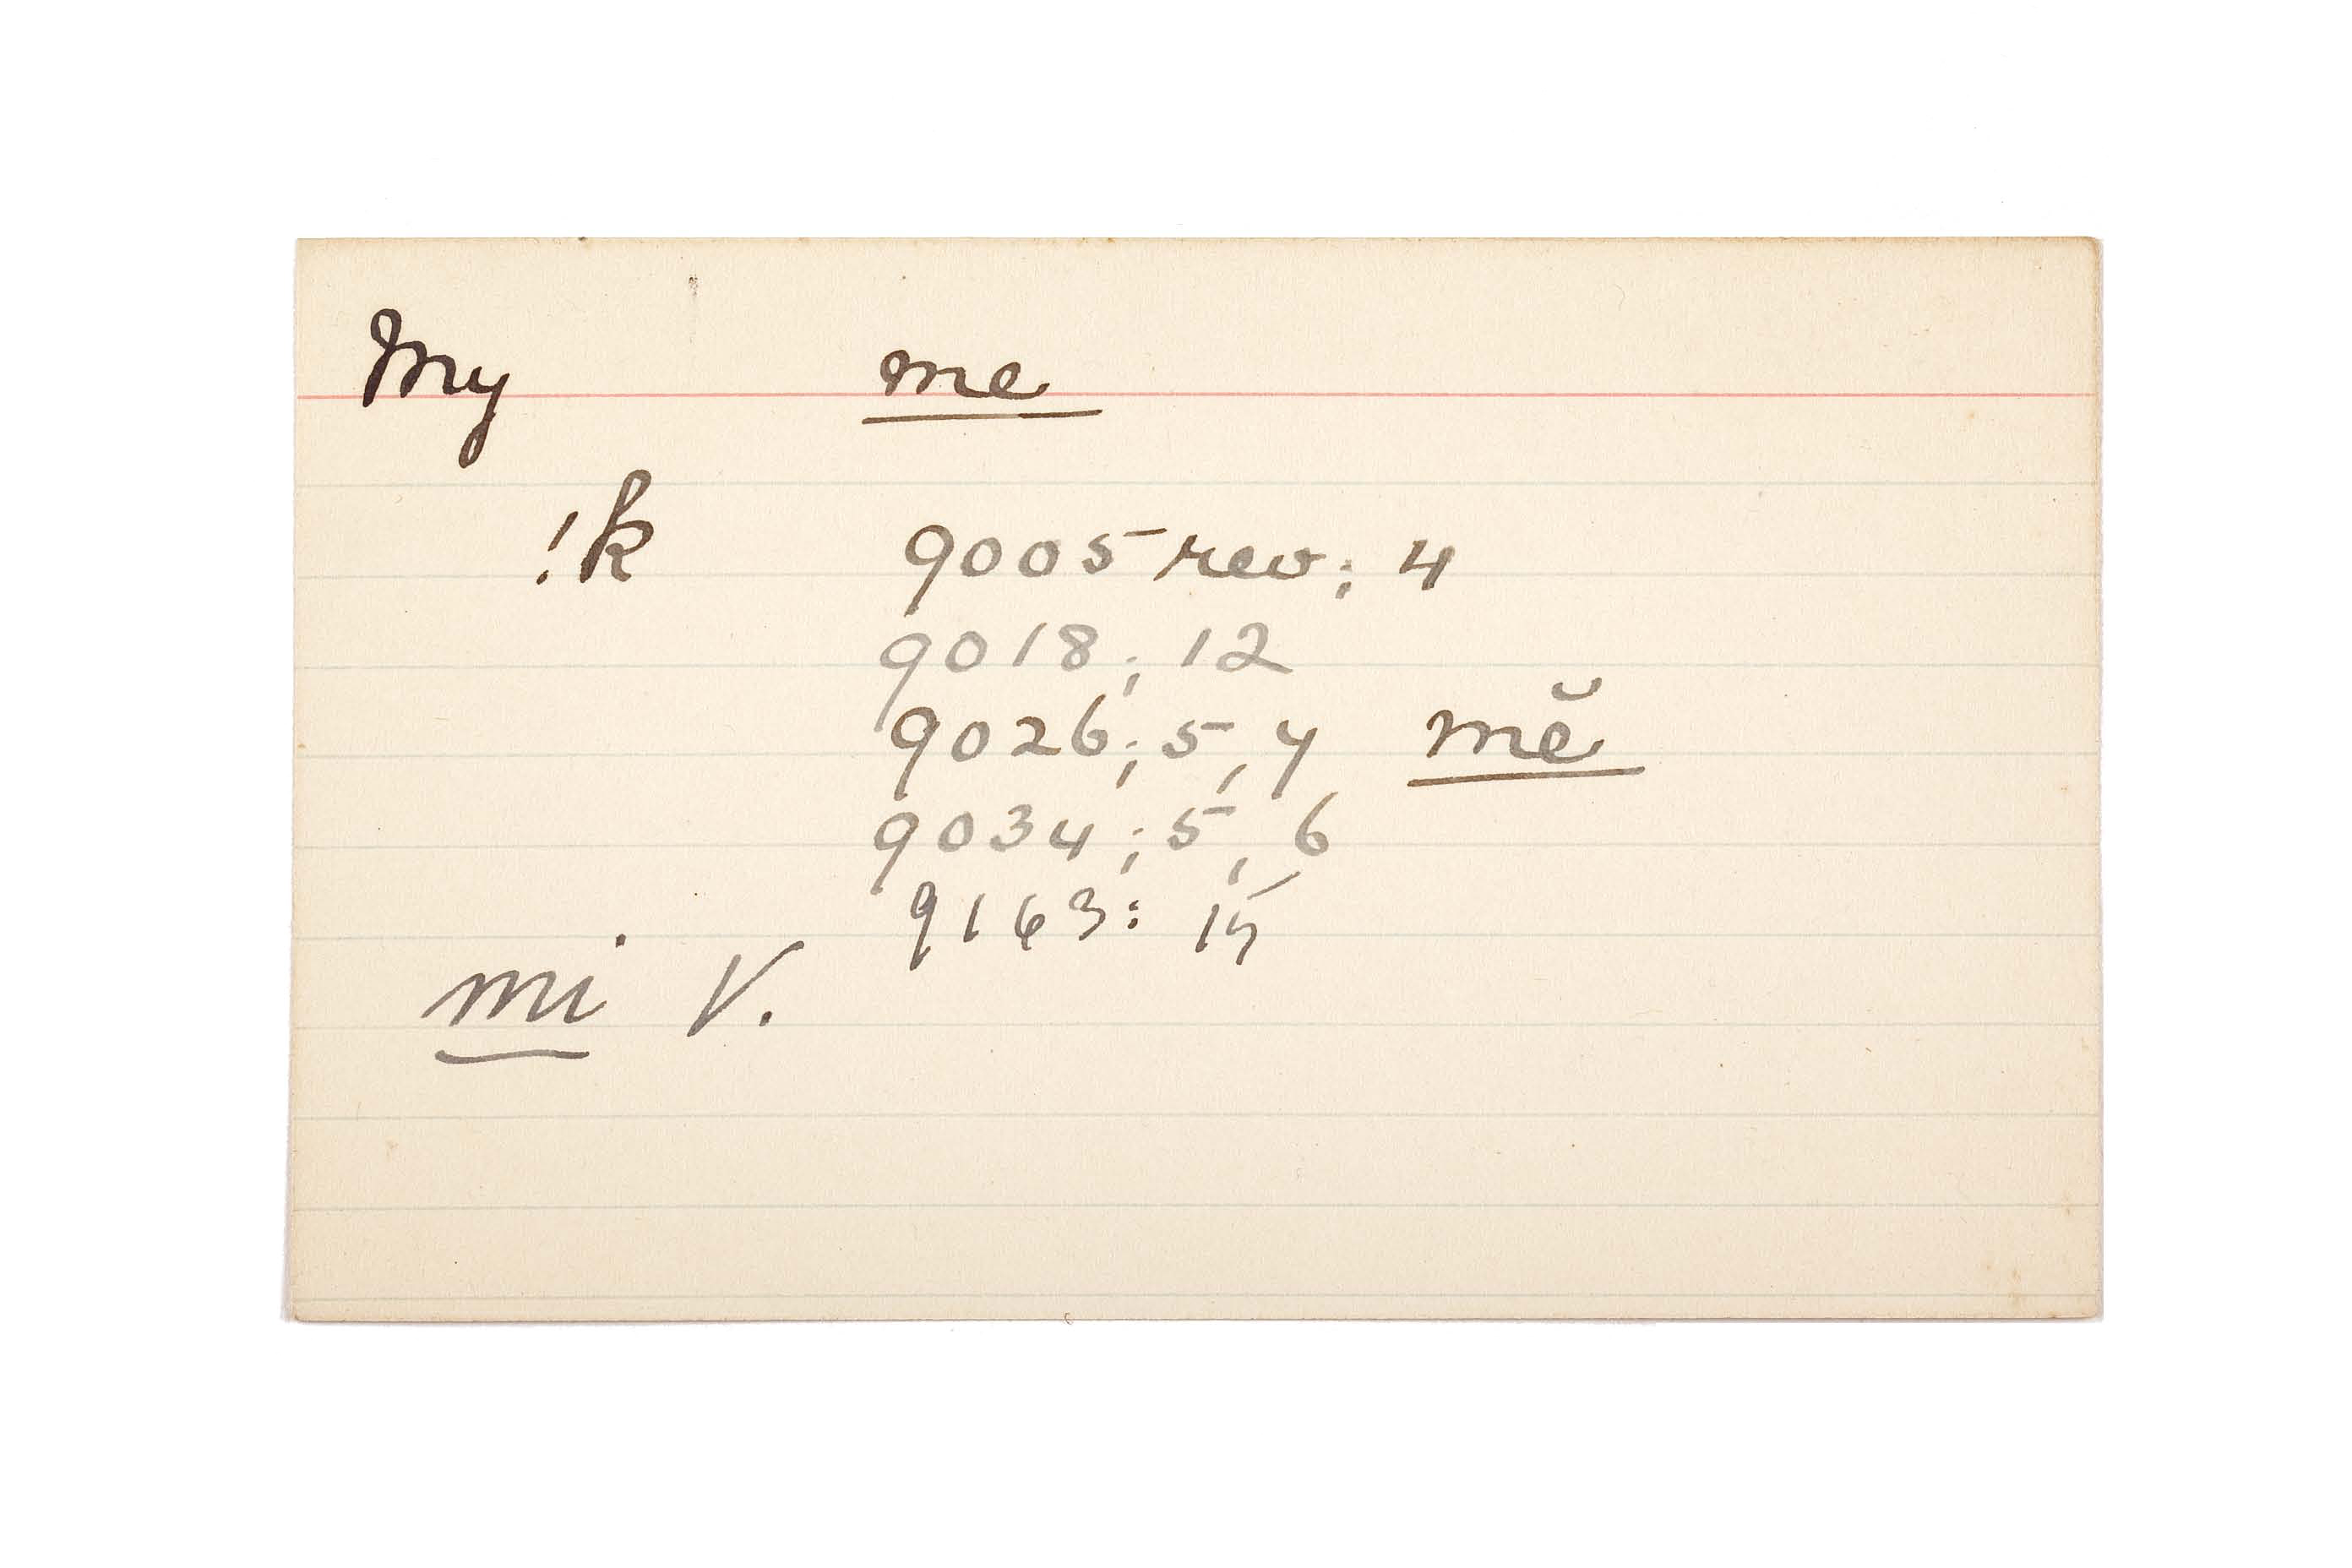 My me
!k 9005 rev; 4
9018; 12
9026; 5, 7 mĕ
9034; 5, 6
9163: 15
mi V.